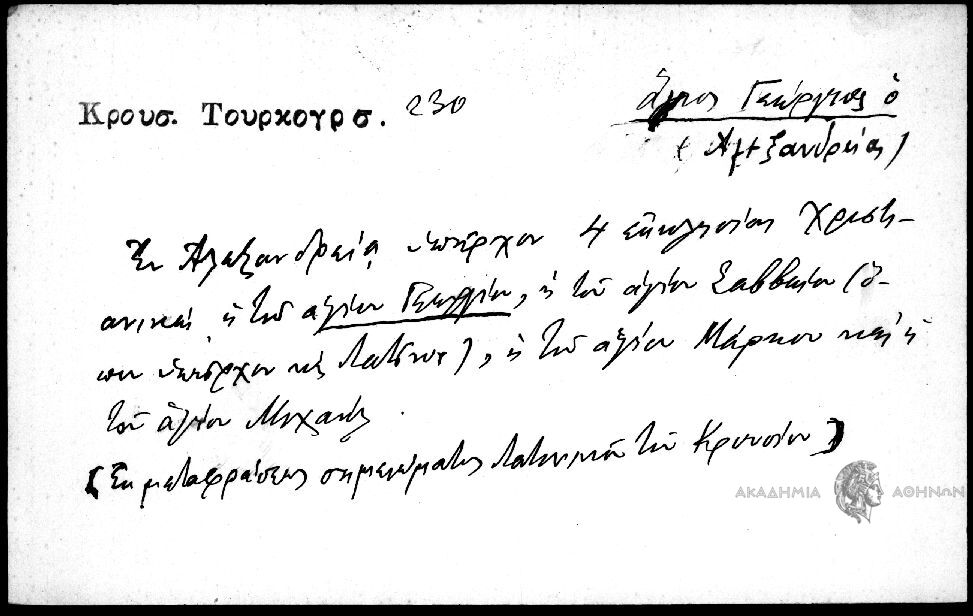 Κρουσ. Τουρκογρσ. 230
ἅγιος Γεώργιος ὁ
(Ἀλεξανδρείας)
Ἐν Ἀλεξανδρείᾳ ὑπῆρχον 4 ἐκκλησίαι Χριστι-
ανικαί ἡ τοῦ ἁγίου Γεωργίου, ἡ τοῦ ἁγίου Σαββαίου (ὅ-
που ὑπῆρχον καὶ Λατῖνοι), ἡ τοῦ ἁγίου Μάρκου καὶ ἡ
τοῦ ἁγίου Μιχαήλ.
[Ἐκ μεταφράσεως σημειώματος λατινικοῦ τοῦ Κρουσίου]
ΑΚΑΔΗΜΙΑ ΑΘΗΝΩΝ